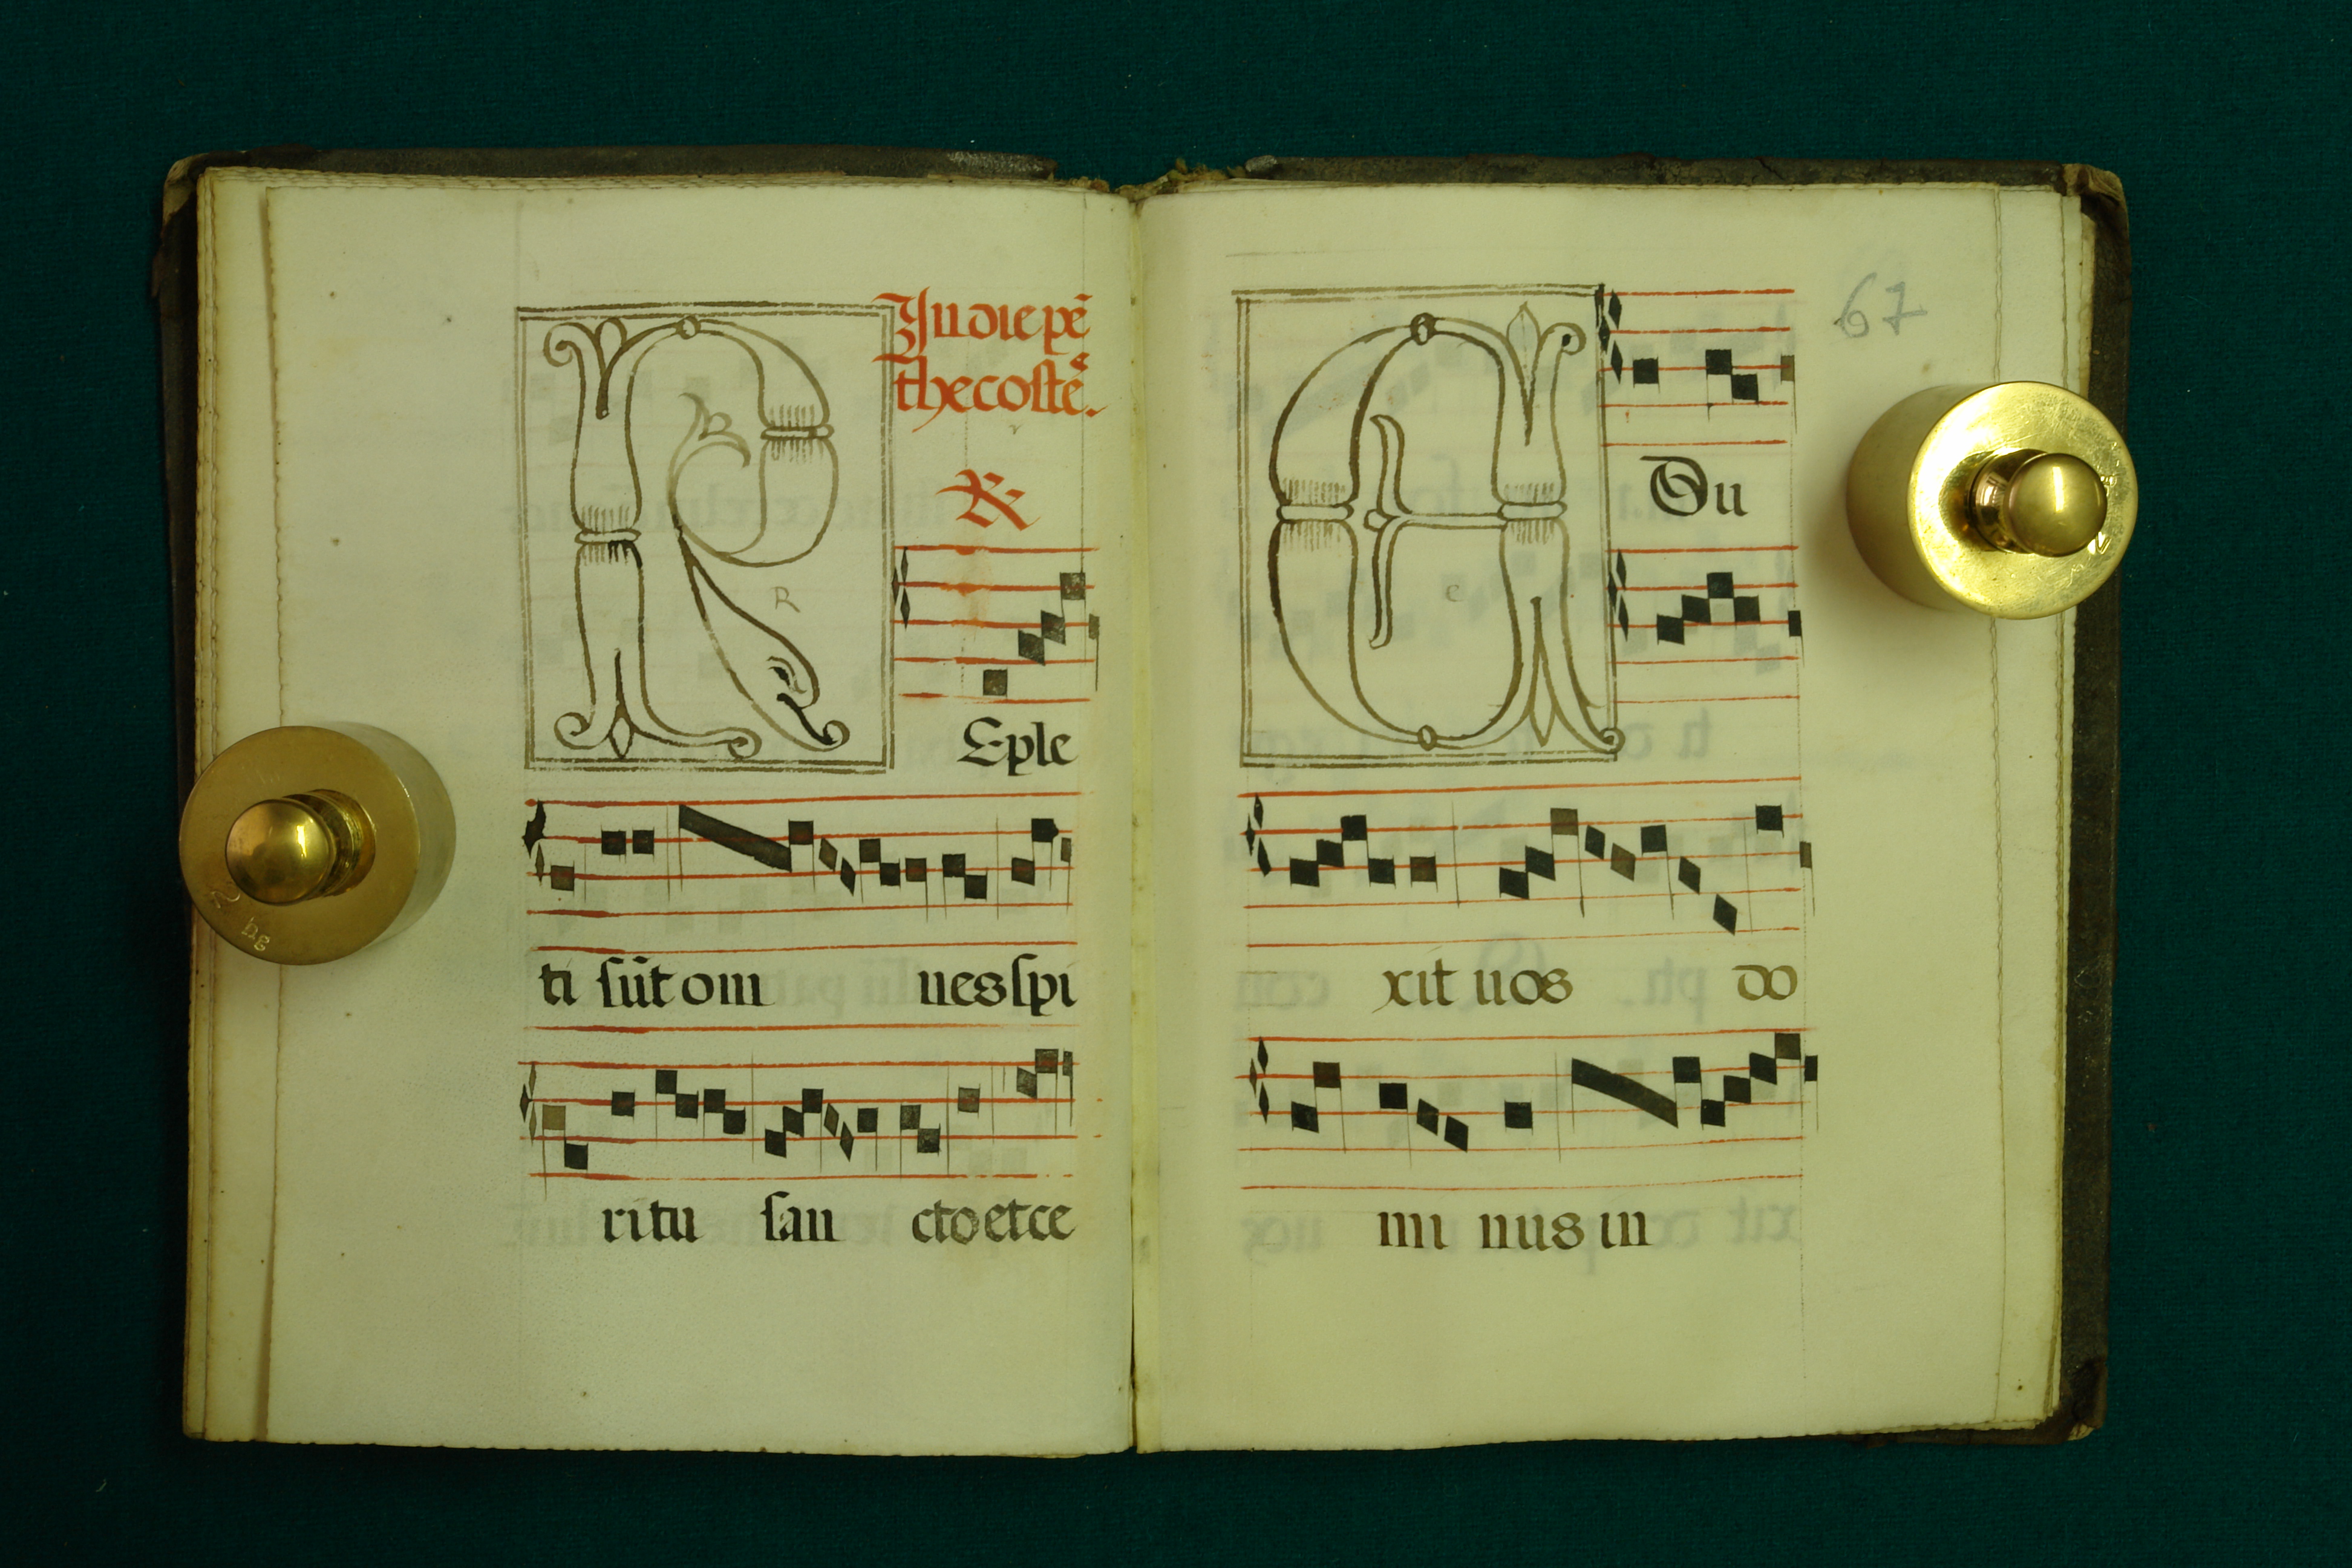 In die pē
thecostē.
R
R
Eple
ti sūt om nes spi
ritu san cto et ce
67
E
Du
e
xit uos do
mi nus in
2 kg